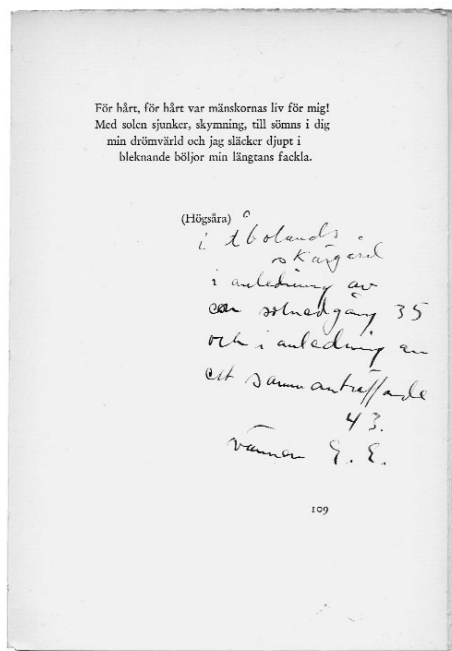 För hårt, för hårt var mänskornas liv för mig!
Med solen sjunker, skymning, till sömns i dig
min drömvärld och jag släcker djupt i
bleknande böljor min längtans fackla.
(Högsåra)
i Åbolands
skärgård
i anledning av
en solnedgång 35
och i anledning av
ett sammanträffande
43.
vännen E. E.
109